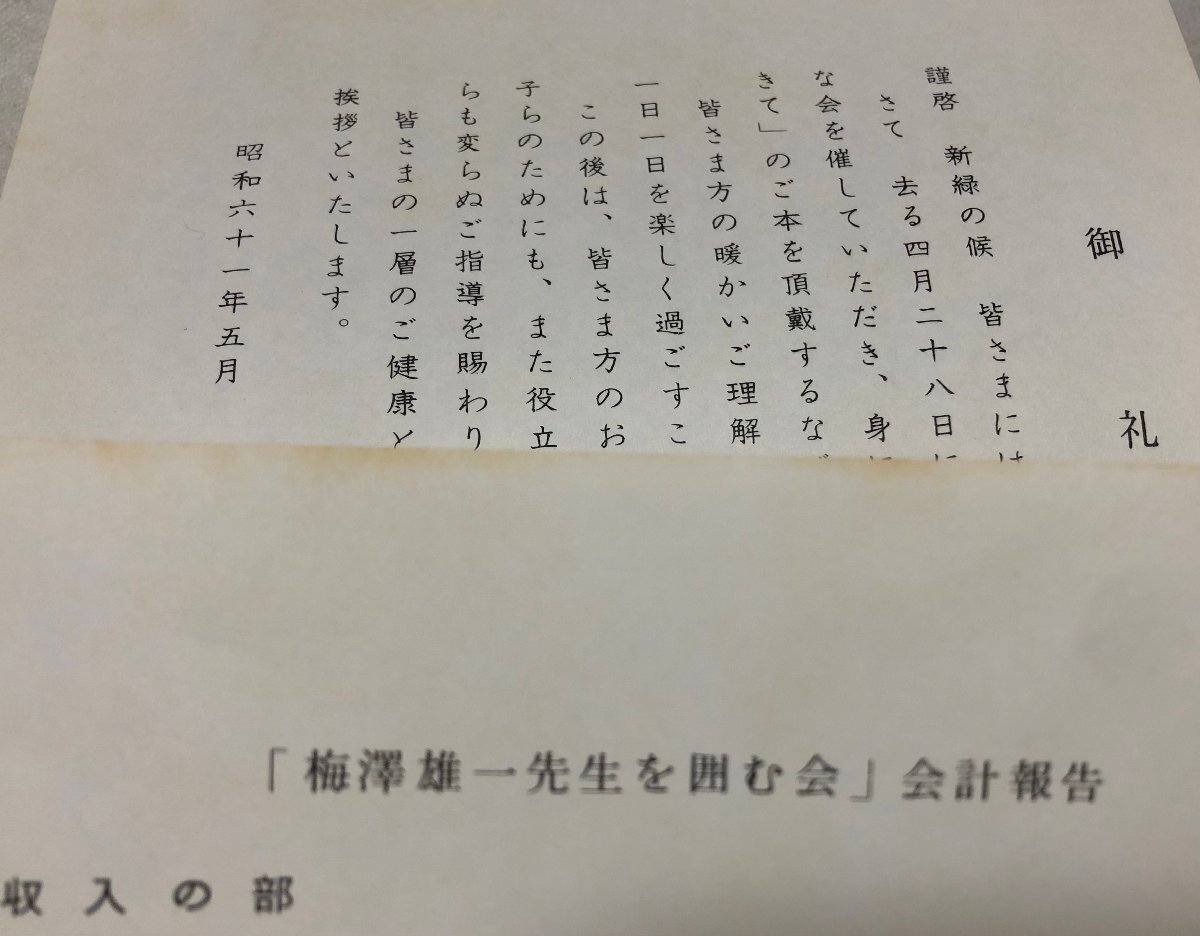 御礼
謹啓　新緑の候　皆さまには
さて　去る四月二十八日に
な会を催していただき、身に
きて」のご本を頂戴するな
皆さま方の暖かいご理解
一日一日を楽しく過ごすこ
この後は、皆さま方のお
子らのためにも、また役立
らも変らぬご指導を賜わり
皆さまの一層のご健康と
挨拶といたします。
昭和六十一年五月
「梅澤雄一先生を囲む会」会計報告
収入の部